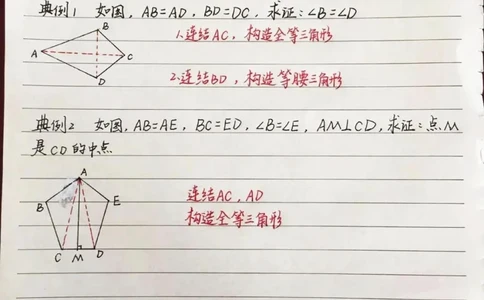 典例1 如图, AB=AD, BD=DC, 求证:∠B=∠D
1.连结AC, 构造全等三角形
2.连结BD, 构造等腰三角形
A
B
C
D
典例2 如图, AB=AE, BC=ED, ∠B=∠E, AM⊥CD,求证:点M
是CD的中点
连结AC, AD
构造全等三角形
A
B
E
C
M
D